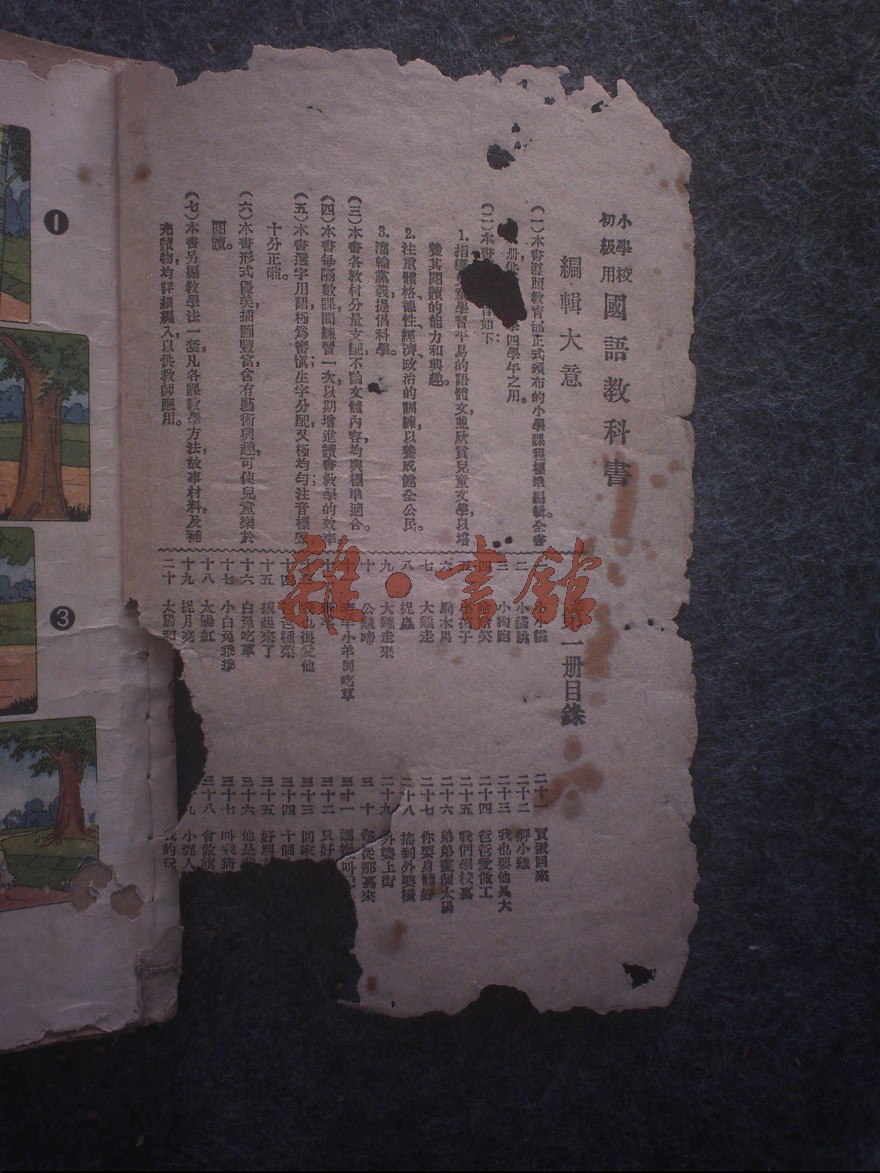 小學校
初級用
國語教科書
編輯大意
(一)本書遵照教育部正式頒布的小學課程標準編輯全書
四學年之用。
(二)本書
如下:
1.指
學習平易的語體文並欣賞兒童文學,以培
養其閱讀的能力和興趣。
2.注重體格德性經濟政治的訓練,以養成健全公民。
3.灌輸黨義提倡科學。
(三)本書各教材分量支配不論文體內容,均與標準適合。
(四)本書每隔數課間練習一次以期增進讀書教學的效率
(五)本書選字用語,極為審慎;生字分配,又極均勻;注音標
十分正確。
(六)本書形式優美,插圖豐富,含有藝術興趣,可使兒童樂於
閱讀。
(七)本書另編教學法一套,凡各課教學方法,故事材料及補
充讀物均詳細編入,以供教師應用。
册目錄
小小貓
二 小貓跳
三 小狗跑
四
笑
五
孩子
六 騎木馬
七 大雞走
八 捉蟲
九 大雞走來
十 公雞啼
小羊同吃草
也很愛他
種菜
十五 拔起來了
十六 白兔吃草
十七 小白兔乖乖
十八 太陽紅
十九 捉月亮
二十 太陽和
二十一 買蛋回來
二十二
小雞
二十三 我也要他長大
二十四 爸爸愛做工
二十五 我們學校裏
二十六 弟弟畫個太陽
二十七 你要身體好
二十八 搖到外婆橋
二十九 外婆上街
三十 你從那裏來
三十一
三十二 只好
三十三 回家
三十四 十個
三十五 好朋
三十六 他是
三十七 叫我猜
三十八 會做旗
九 小泥人
我的玩
1
3
雜·書館